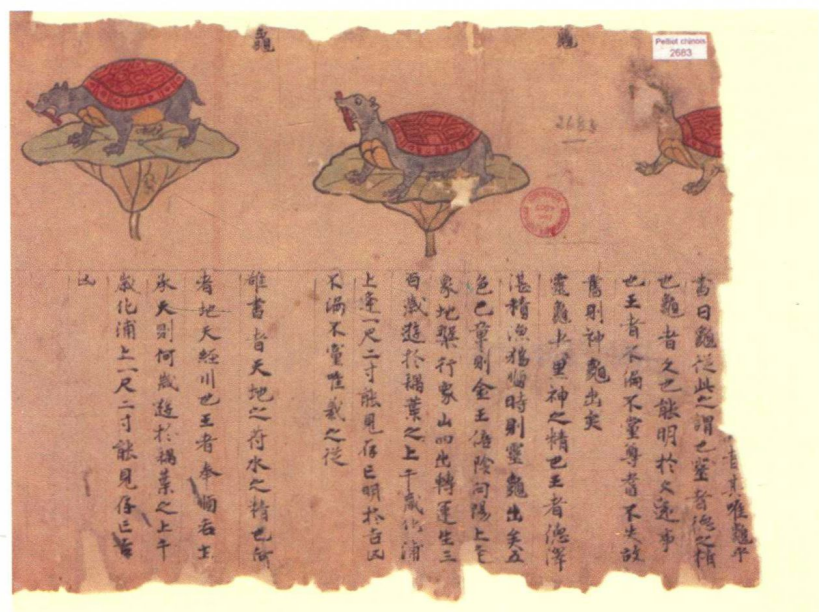 Pelliot chinois
2683
2683
龜
龜
耆其唯龜乎
書曰龜從此之謂也靈者德之精
也龜者久也能明於久遠事
也王者不偏不黨尊耆不失故
舊則神龜出矣
靈龜者黑神之精也王者德澤
湛積漁獵順時則靈龜出矣五
色已章則金玉倍陰向陽上
象地槃行象山四出轉運生三
百歲遊於耦葉之上千歲化浦
上逢一尺二寸能見存亡明於吉凶
不偏不黨唯義之從
雒書者天地之符水之精也
者地天經川也王者奉順后土
承天則何歲遊於耦葉之上千
歲化浦上一尺二寸能見存亡吉
凶